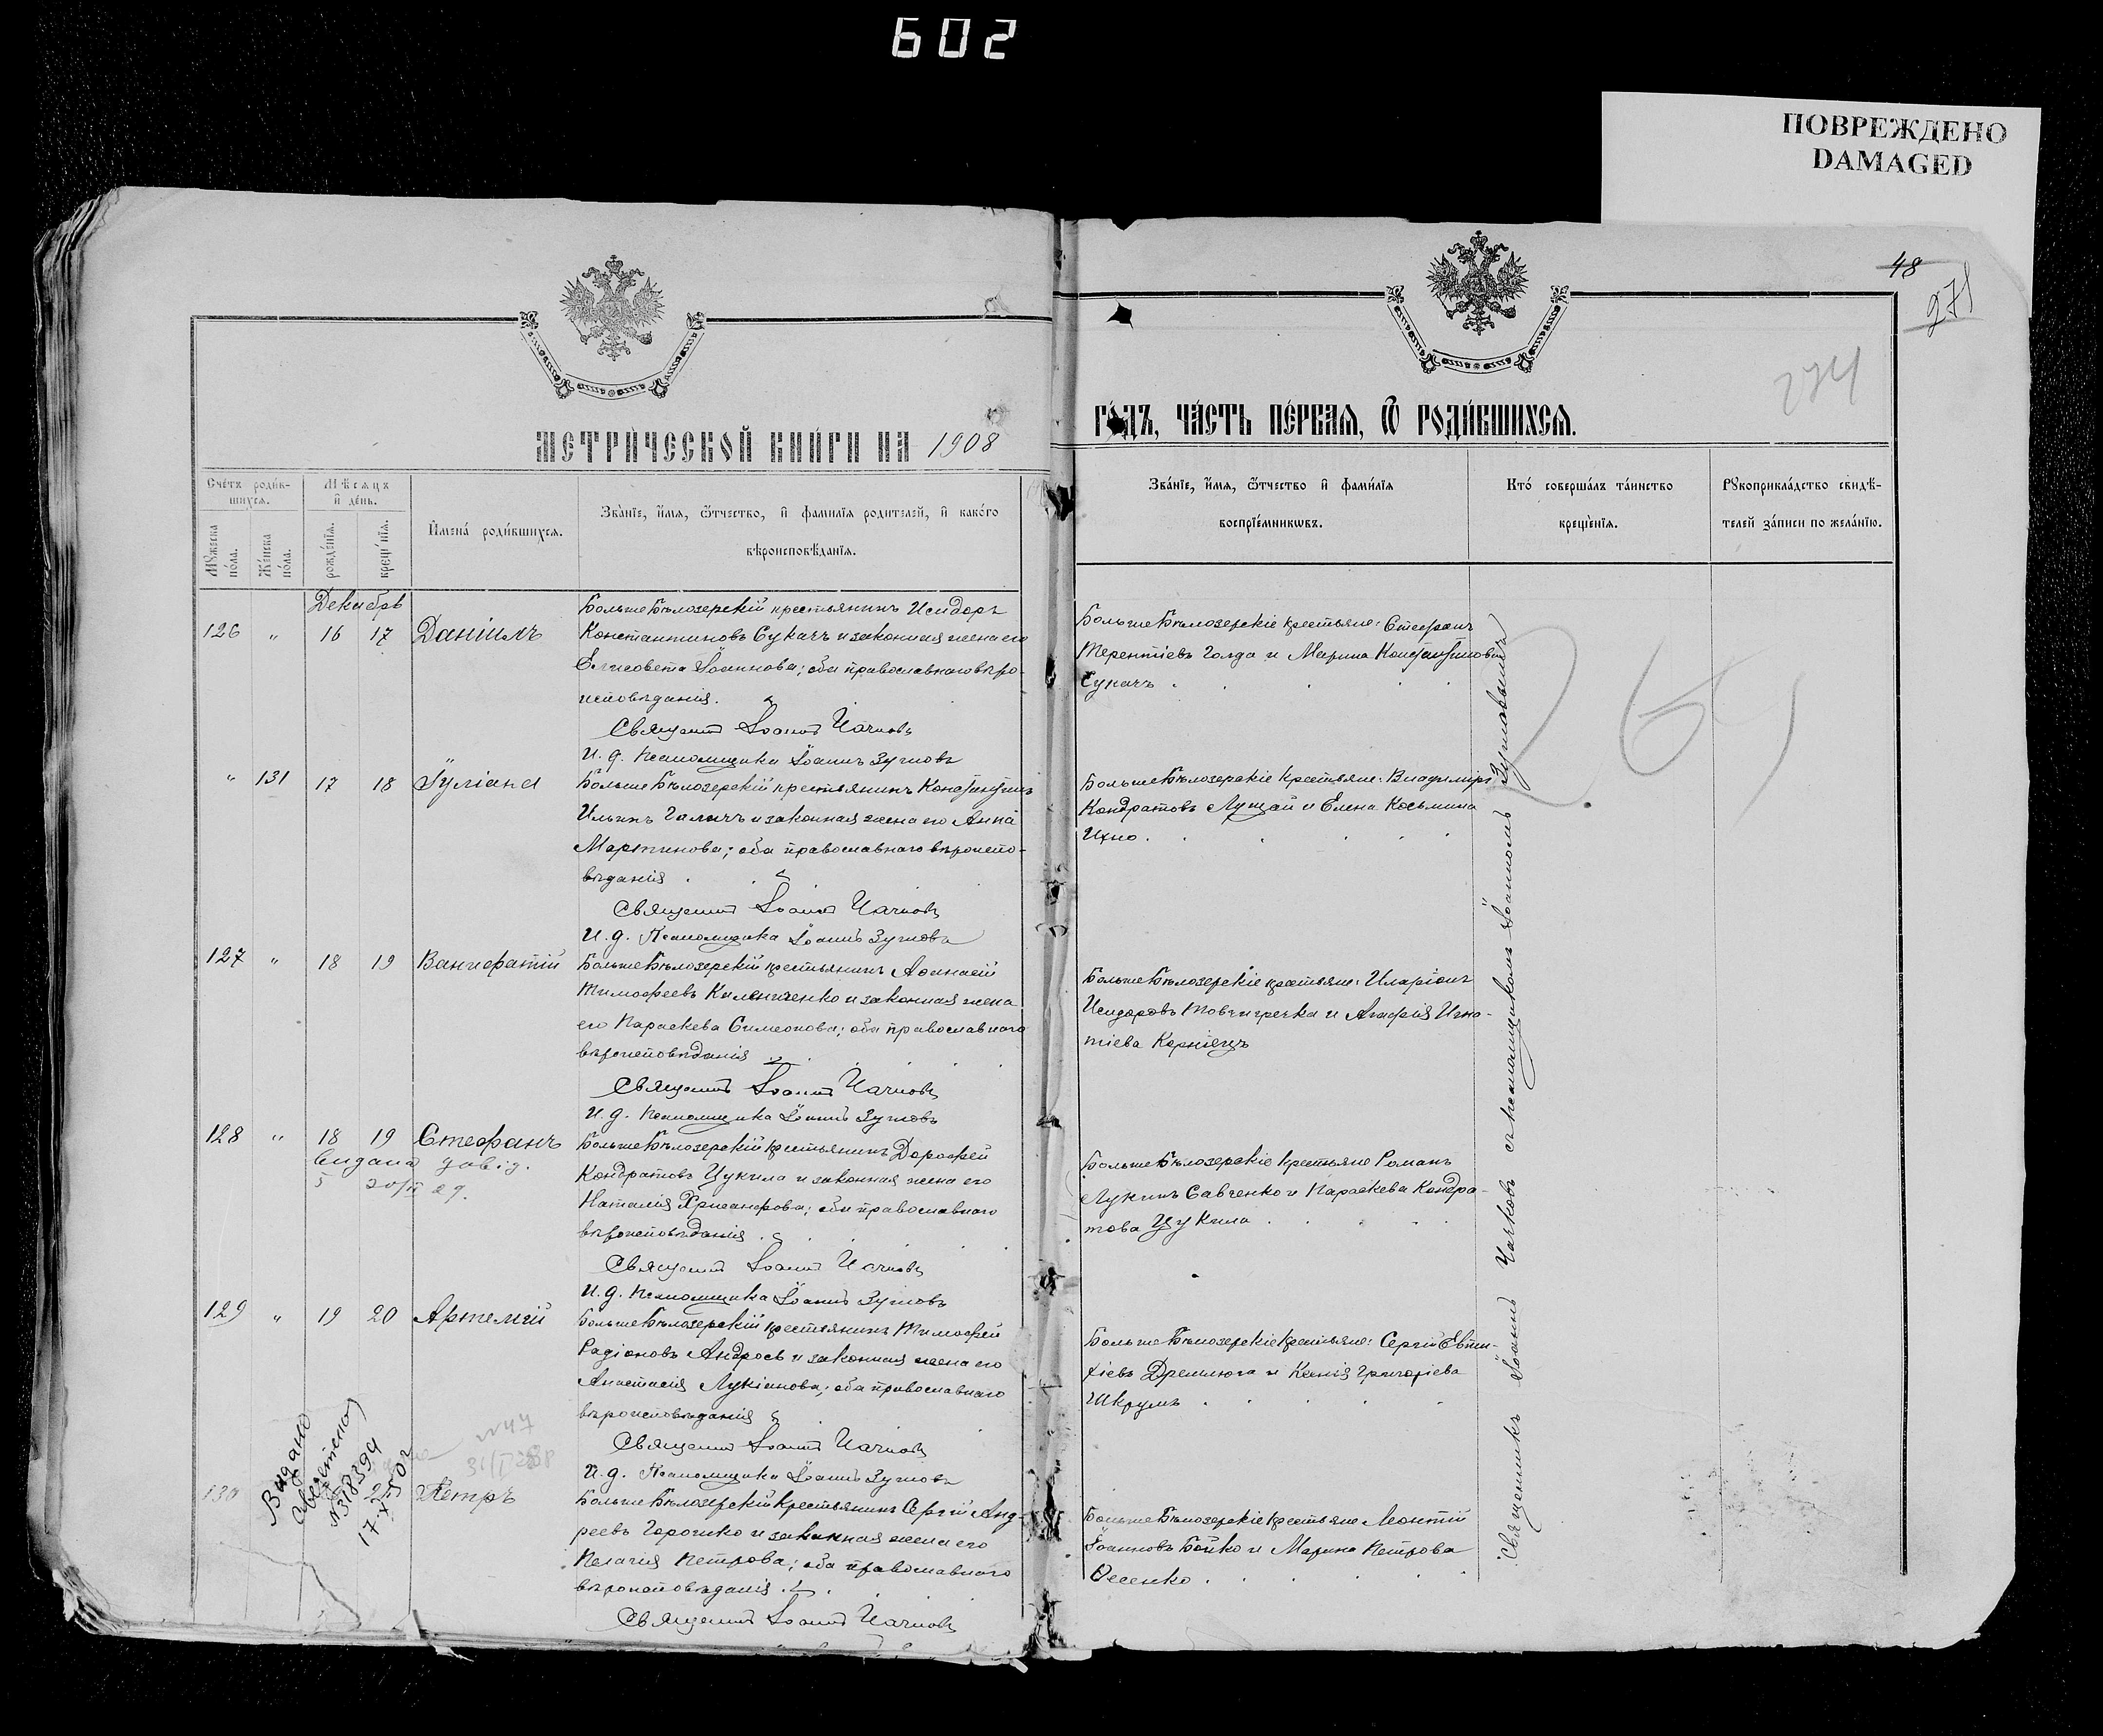 602
ПОВРЕЖДЕНО
DAMAGED
48
271
274
МЕТРИ́ЧЕСКОЙ КНИ́ГИ НА 1908
ГО́ДЪ, ЧА́СТЬ ПЕ́РВАЯ, Ѽ РОДИ́ВШИХСЯ.
Сче́тъ роди́в-
шихся.
Мѣ́сяцъ
и де́нь.
Му́жеска по́ла.
Же́нска по́ла.
рожде́нїя.
креще́нїя.
Имена́ роди́вшихся.
Зва́нїе, и́мя, ѻ́тчество, и фами́лїя роди́телей, и како́го
вѣроисповѣ́данїя.
Зва́нїе, и́мя, ѻ́тчество и фами́лїя
воспрїе́мниковъ.
Кто́ соверша́лъ та́инство
креще́нїя.
Рукоприкла́дство свидѣ́-
телей за́писи по жела́нїю.
Декабрь
126 " 16 17 Даніилъ
БольшеБѣлозерскій крестьянинъ Исидоръ
Константиновъ Сукачъ и законная жена его
Елисавета Іоаннова; оба православнаго вѣро-
исповѣданія.
Священник Іоанн Чачковъ
И. д. Псаломщика Іоаннъ Зугловъ
БольшеБѣлозерскіе крестьяне: Стефанъ
Терентіевъ Голда и Марина Константинова
Сукачъ
" 131 17 18 Іуліана
БольшеБѣлозерскій крестьянинъ Константинъ
Ильинъ Галичъ и законная жена его Анна
Мартинова; оба православнаго вѣроиспо-
вѣданія
Священник Іоанн Чачковъ
И. д. Псаломщика Іоаннъ Зугловъ
БольшеБѣлозерскіе крестьяне: Владиміръ
Кондратовъ Лущай и Елена Косьмина
Ихно
127 " 18 19 Ванифатій
БольшеБѣлозерскій крестьянинъ Аѳанасій
Тимоѳеевъ Килениченко и законная жена
его Параскева Симеонова; оба православнаго
вѣроисповѣданія
Священникъ Іоанн Чачковъ
И. д. Псаломщика Іоаннъ Зугловъ
БольшеБѣлозерскіе крестьяне: Иларіонъ
Исидоровъ Товчигречка и Агафія Игна-
тіева Корніецъ
128 " 18 19 Стефанъ
Видана довід.
5 20/II 29.
БольшеБѣлозерскій крестьянинъ Дороѳей
Кондратовъ Цукила и законная жена его
Наталія Хрисанфова; оба православнаго
вѣроисповѣданія
Священник Іоанн Чачковъ
И. д. Псаломщика Іоаннъ Зугловъ
БольшеБѣлозерскіе крестьяне Романъ
Лукинъ Савченко и Параскева Кондра-
това Цукила
129 " 19 20 Артемій
БольшеБѣлозерскій крестьянинъ Тимоѳей
Радіоновъ Андрось и законная жена его
Анастасія Лукіанова; оба православнаго
вѣроисповѣданія
Священник Іоанн Чачковъ
И. д. Псаломщика Іоаннъ Зугловъ
БольшеБѣлозерскіе крестьяне: Сергій Евти-
хіевъ Дремлюга и Ксенія Григоріева
Шкрумъ
Видано
N 318394
N 47
130 Петръ
БольшеБѣлозерскій крестьянинъ Сергій Анд-
реевъ Горошко и законная жена его
Пелагія Петрова; оба православнаго
вѣроисповѣданія
Священник Іоанн Чачковъ
БольшеБѣлозерскіе крестьяне Леонтій
Іоанновъ Бойко и Марина Петрова
Осенко
Священникъ Іоаннъ Чачковъ съ псаломщикомъ Іоанномъ Зугловымъ